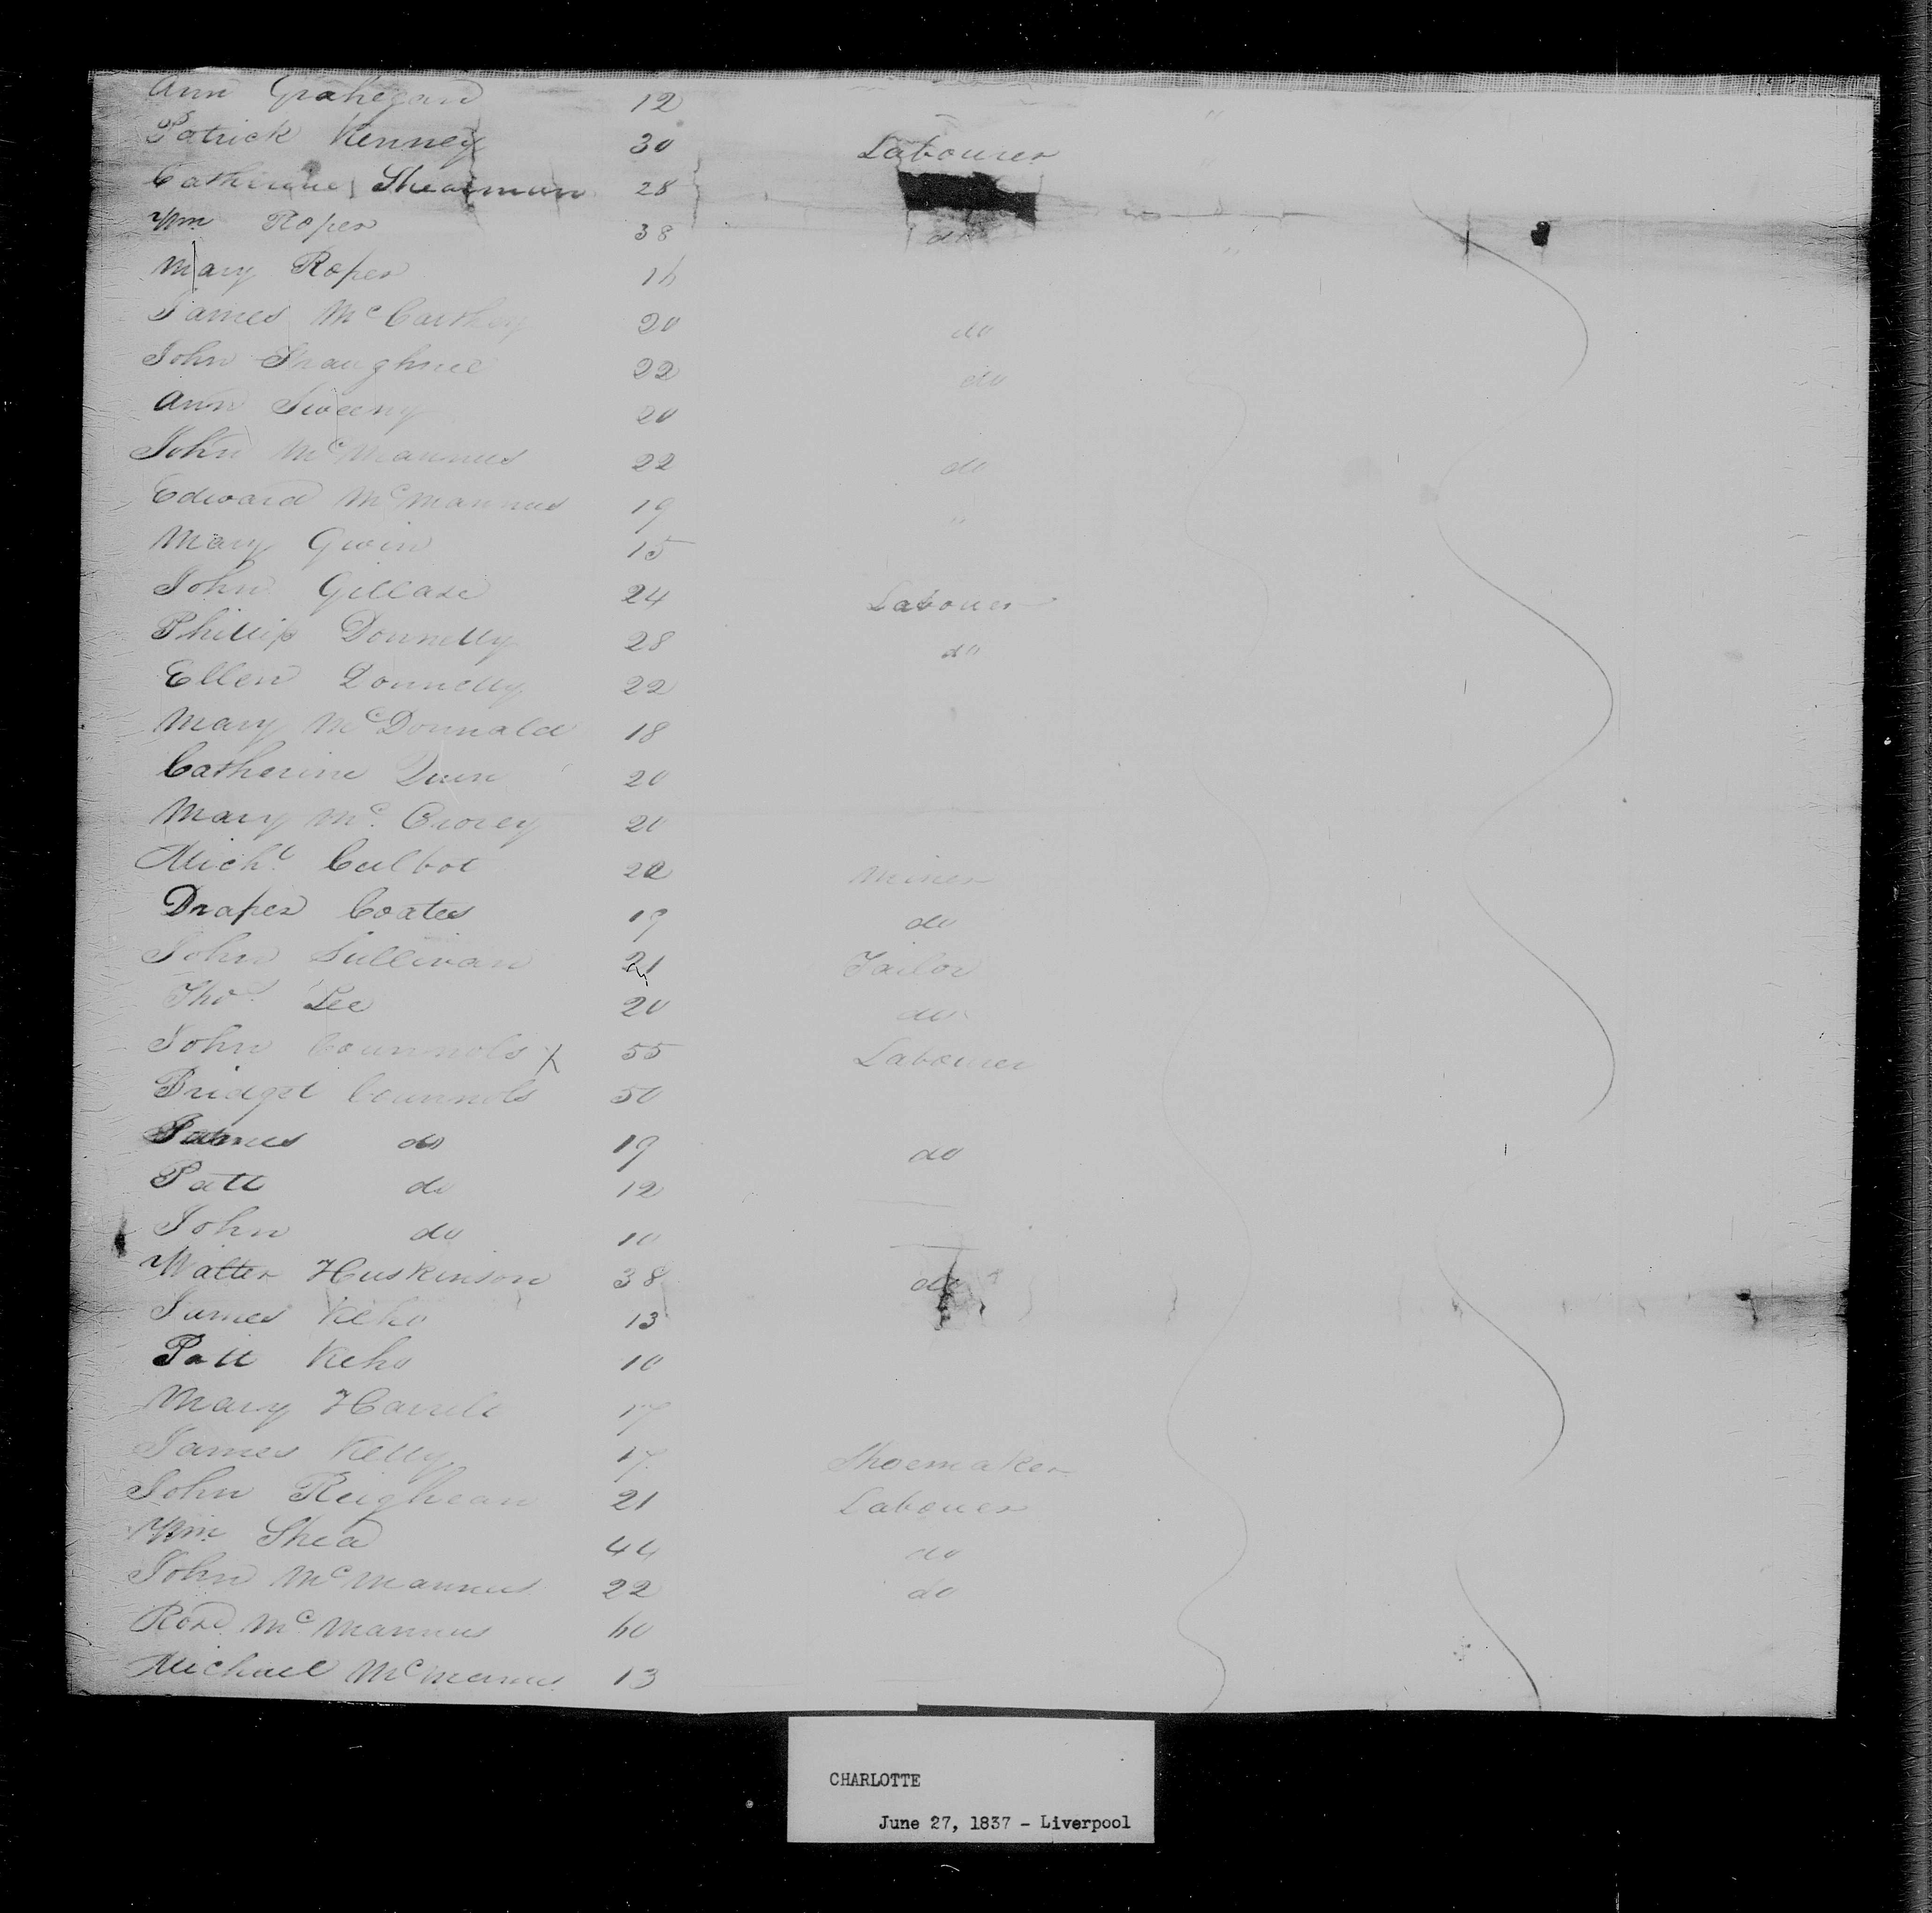 Ann Grahegan 12 "
Patrick Kenney 30 Labourer "
Catherine Shearman 28
Wm Roper 38 do "
Mary Roper 16
James McCarthey 20 do
John 22 do
Ann Sweeny 20
John McMannus 22 do
Edward McMannus 19 "
Mary Gwin 15
John Gillase 24 Labouer
Phillip Donnelly 28 do
Ellen Donnelly 22
Mary McDonnald 18
Catherine Quin 20
Mary Mc. Crorey 20
Michl Culbot 22 Miner
Draper Coates 19 do
John Sullivan 21 Tailor
Thos. Lee 20 do
John Counnols X 55 Labourer
Bridget Counnols 50
James do 19 do
Patt do 12
John do 10
Walter Huskinson 38 do
James Keho 13
Patt Keho 10
Mary 17
James Kelly 17 Shoemaker
John Reighean 21 Labouer
Wm Shea 44 do
John McMannus 22 do
Rose McMannus 60
Michael McManus 13
CHARLOTTE
June 27, 1837 - Liverpool